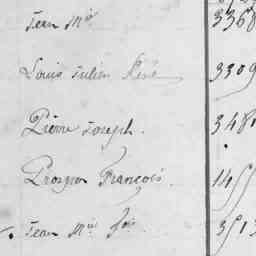 Jean M.ie 3368
Louis Julien René 3309
Pierre Joseph. 3481
Prosper François. 1455
Jean M.ie fois 3513